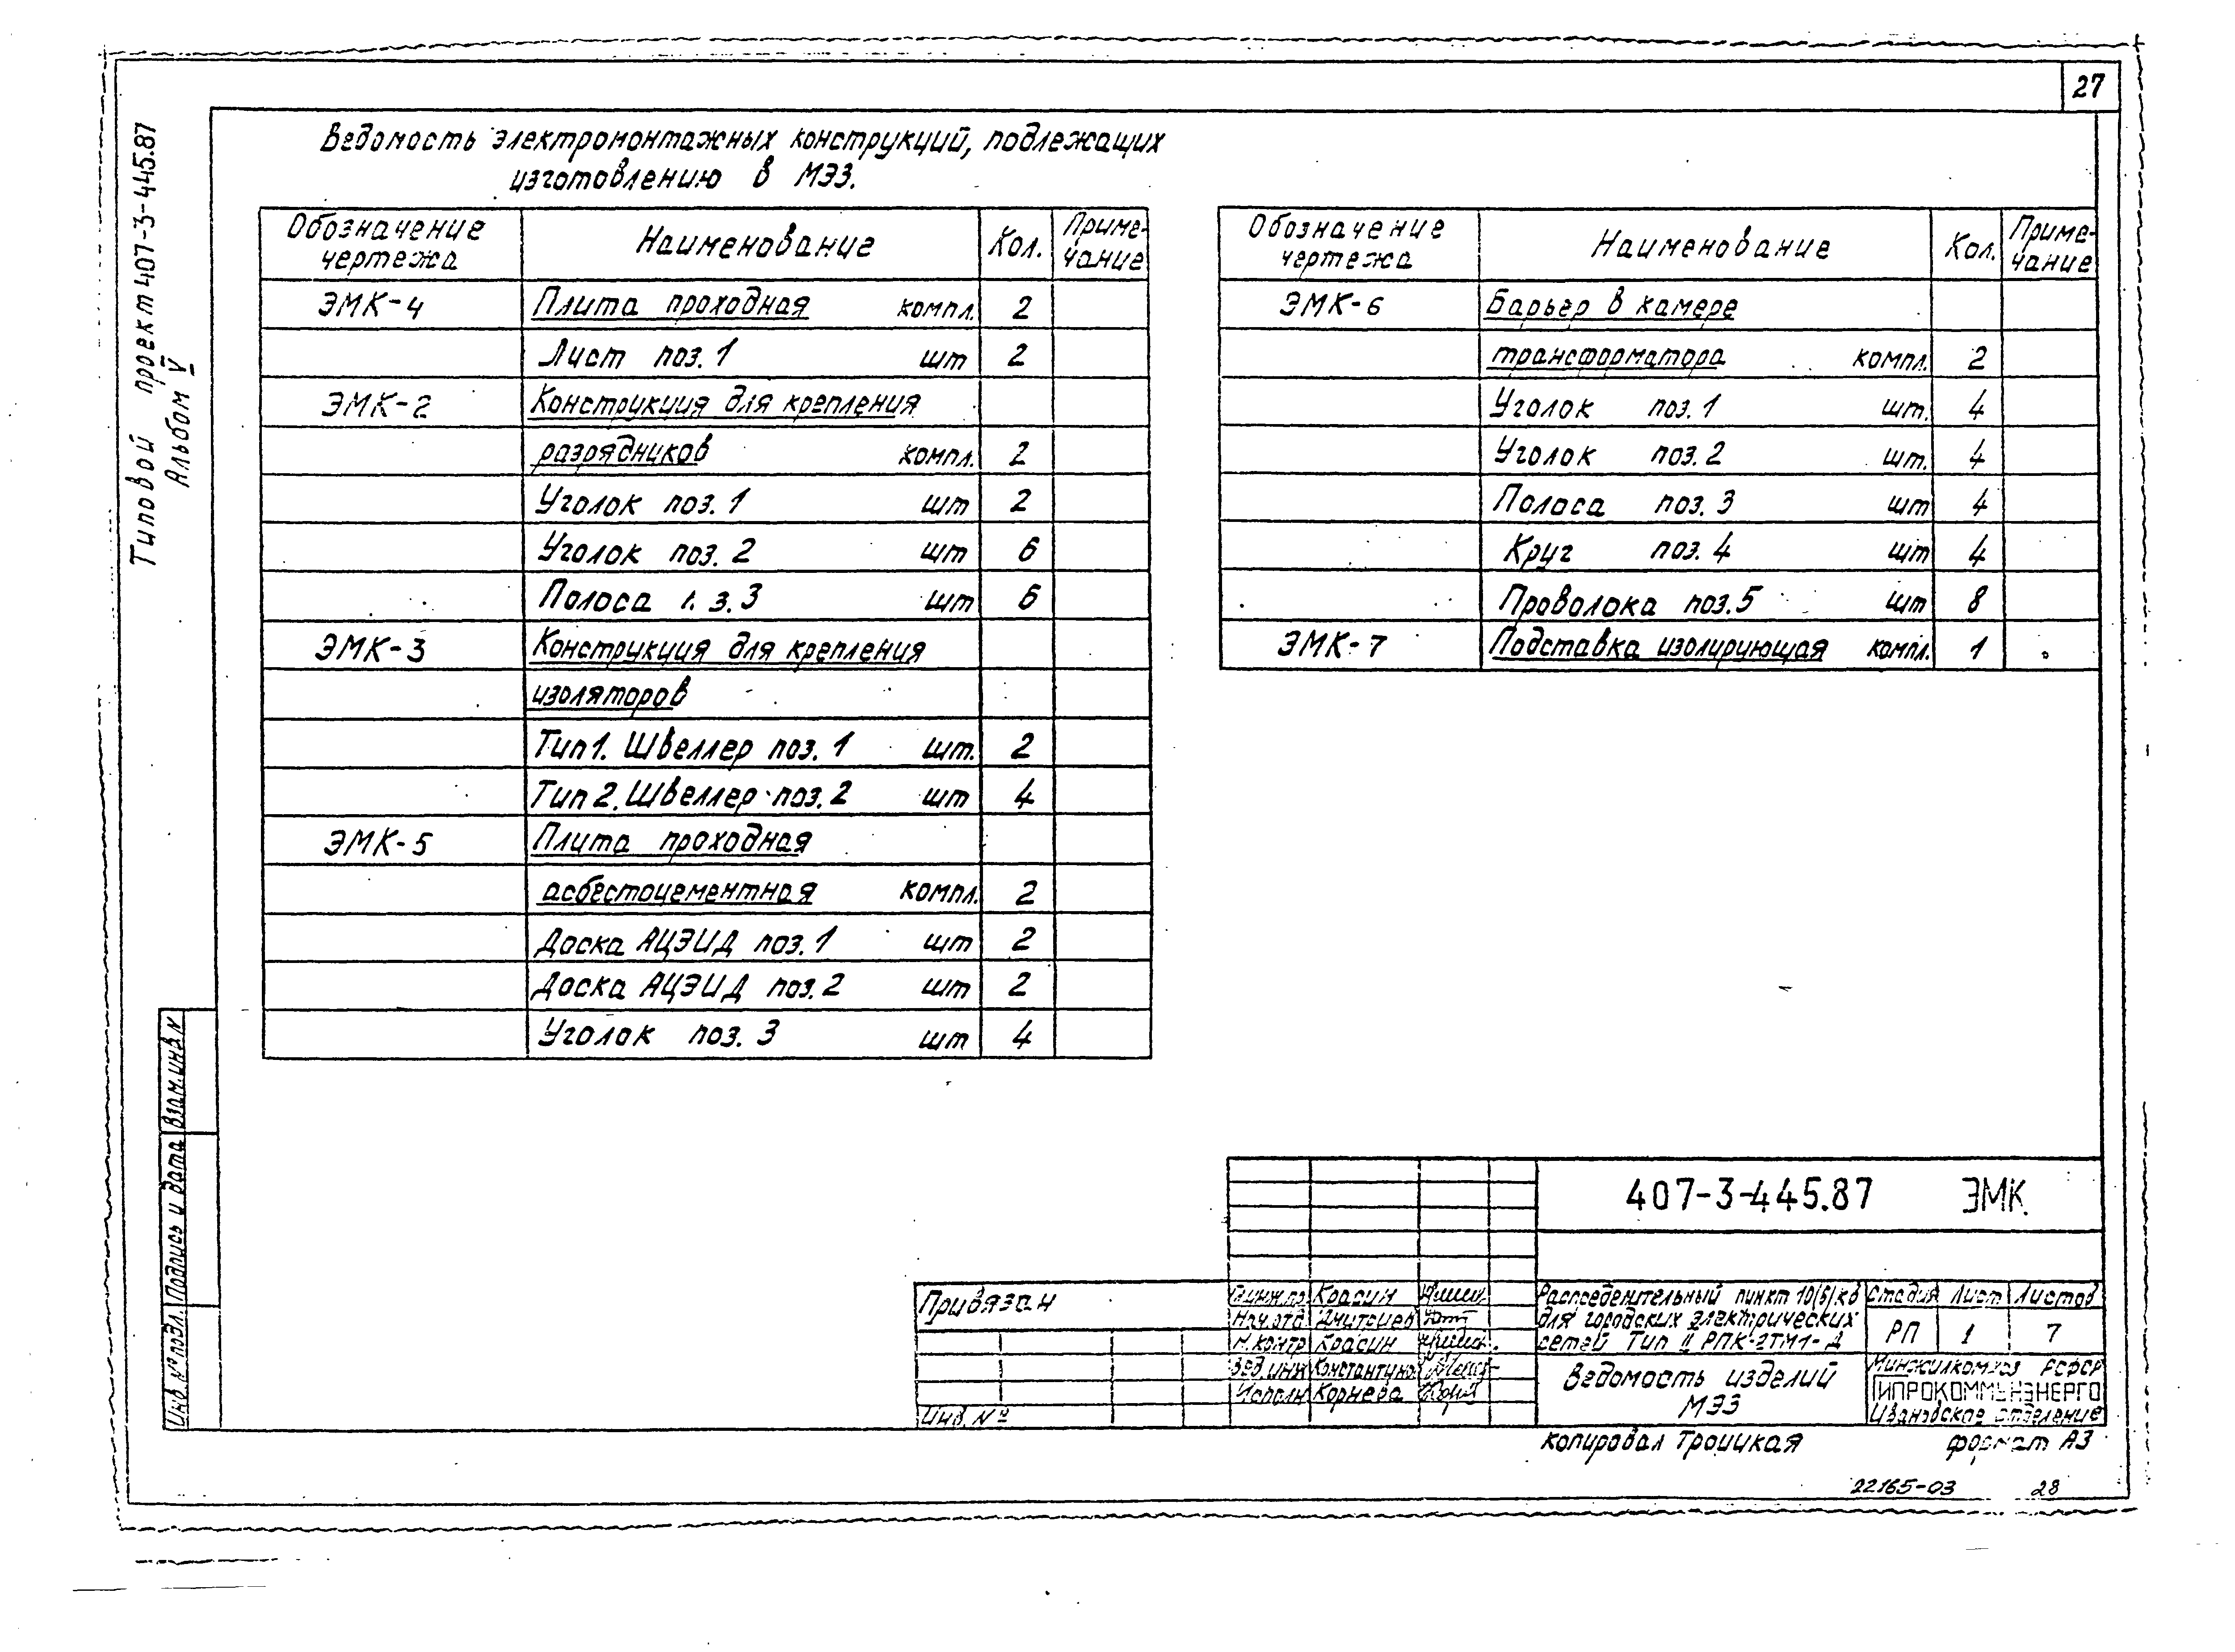 27
Типовой проект 407-3-445.87
Альбом V
Ведомость электромонтажных конструкций, подлежащих
изготовлению в МЭЗ.
Обозначение чертежа Наименование Кол. Приме-чание
ЭМК-4 Плита проходная компл. 2
Лист поз. 1 шт 2
ЭМК-2 Конструкция для крепления
разрядников компл. 2
Уголок поз. 1 шт 2
Уголок поз. 2 шт 6
Полоса 3 шт 6
ЭМК-3 Конструкция для крепления
изоляторов
Тип 1. Швеллер поз. 1 шт. 2
Тип 2. Швеллер поз. 2 шт 4
ЭМК-5 Плита проходная
асбестоцементная компл. 2
Доска АЦЭИД поз. 1 шт 2
Доска АЦЭИД поз. 2 шт 2
Уголок поз. 3 шт 4
Обозначение чертежа Наименование Кол. Приме-чание
ЭМК-6 Барьер в камере
трансформатора компл. 2
Уголок поз. 1 шт. 4
Уголок поз. 2 шт. 4
Полоса поз. 3 шт 4
Круг поз. 4 шт 4
Проволока поз. 5 шт 8
ЭМК-7 Подставка изолирующая компл. 1
Взам. инв. N
Подпись и дата
Инв. № подл.
407-3-445.87 ЭМК.
Привязан
Инв. №
Красин
Нач. отд. Дмитриев
Н. контр Красин
Вед. инж Константинов
Исполн Корнева
Распределительный пункт 10(6) кв
для городских электрических
сетей Тип II РПК-2ТМ1-Д
Стадия Лист Листов
РП 1 7
Ведомость изделий
МЭЗ
Минжилкомхоз РСФСР
ГИПРОКОММУНЭНЕРГО
Ивановское отделение
Копировал Троицкая формат А3
22165-03 28